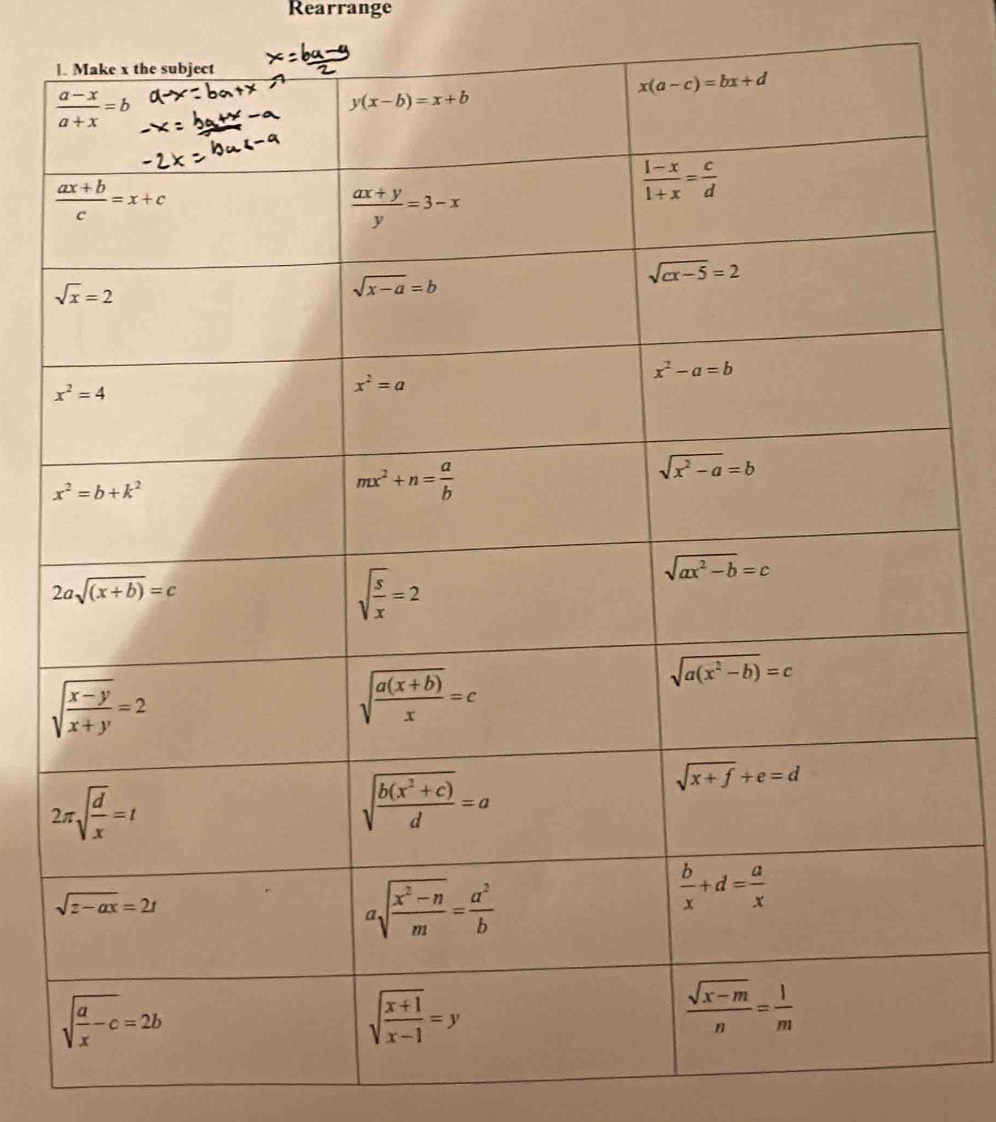 Rearrange
x = (ba-a)/2
1. Make x the subject
(a-x)/(a+x) = b
a-x = ba+x ↗
-x = ba+x -a
-2x = ba-a
y(x-b) = x+b
x(a-c) = bx+d
(ax+b)/c = x+c
(ax+y)/y = 3-x
(1-x)/(1+x) = c/d
√x = 2
√(x-a) = b
√(cx-5) = 2
x² = 4
x² = a
x² - a = b
x² = b+k²
mx² + n = a/b
√(x²-a) = b
2a√((x+b)) = c
√(s/x) = 2
√(ax²-b) = c
√((x-y)/(x+y)) = 2
√(a(x+b)/x) = c
√(a(x²-b)) = c
2π√(d/x) = t
√(b(x²+c)/d) = a
√(x+f) + e = d
√(z-ax) = 2t
a√((x²-n)/m) = a²/b
b/x + d = a/x
√(a/x - c) = 2b
√((x+1)/(x-1)) = y
√(x-m)/n = 1/m